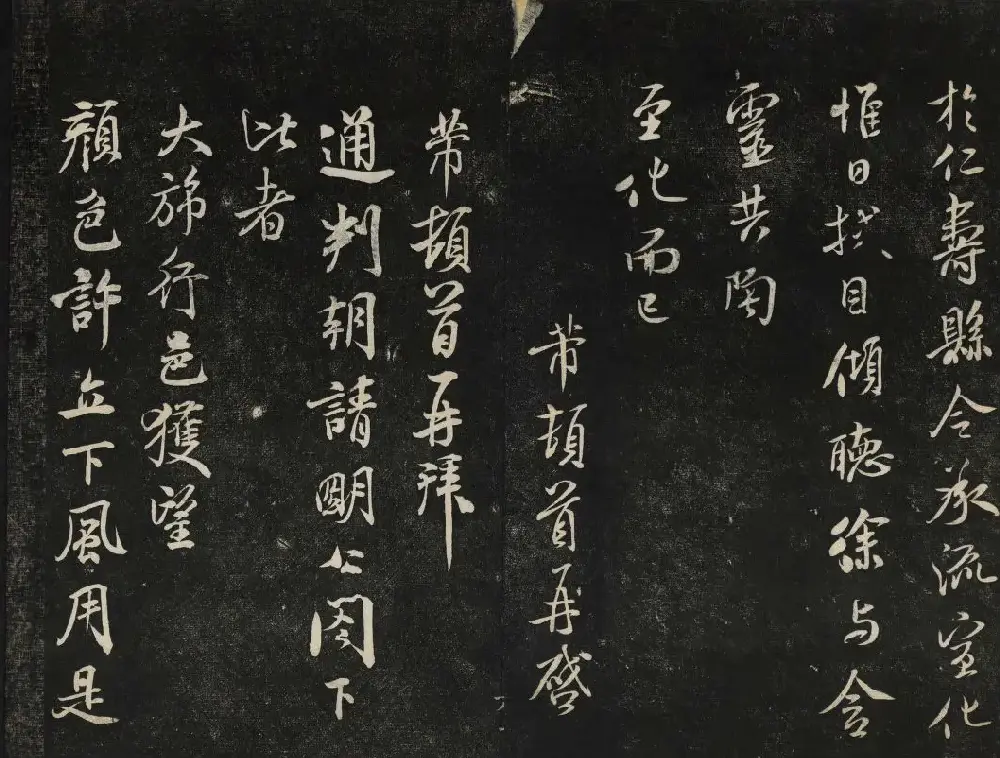 於仁壽縣令承流宣化
惟日拭目傾聽徐与含
靈共陶
至化而已
芾頓首再啓
芾頓首再拜
通判朝請明公閣下
比者
大旆行邑獲望
顏色許立下風用是